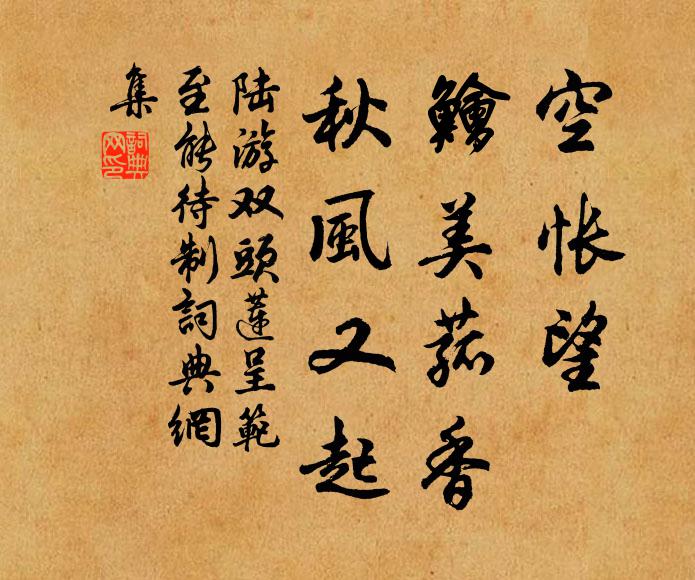 空悵望
鱠美菰香
秋風又起
陸游双頭蓮呈範
至能待制詞典網
集
詞典网印